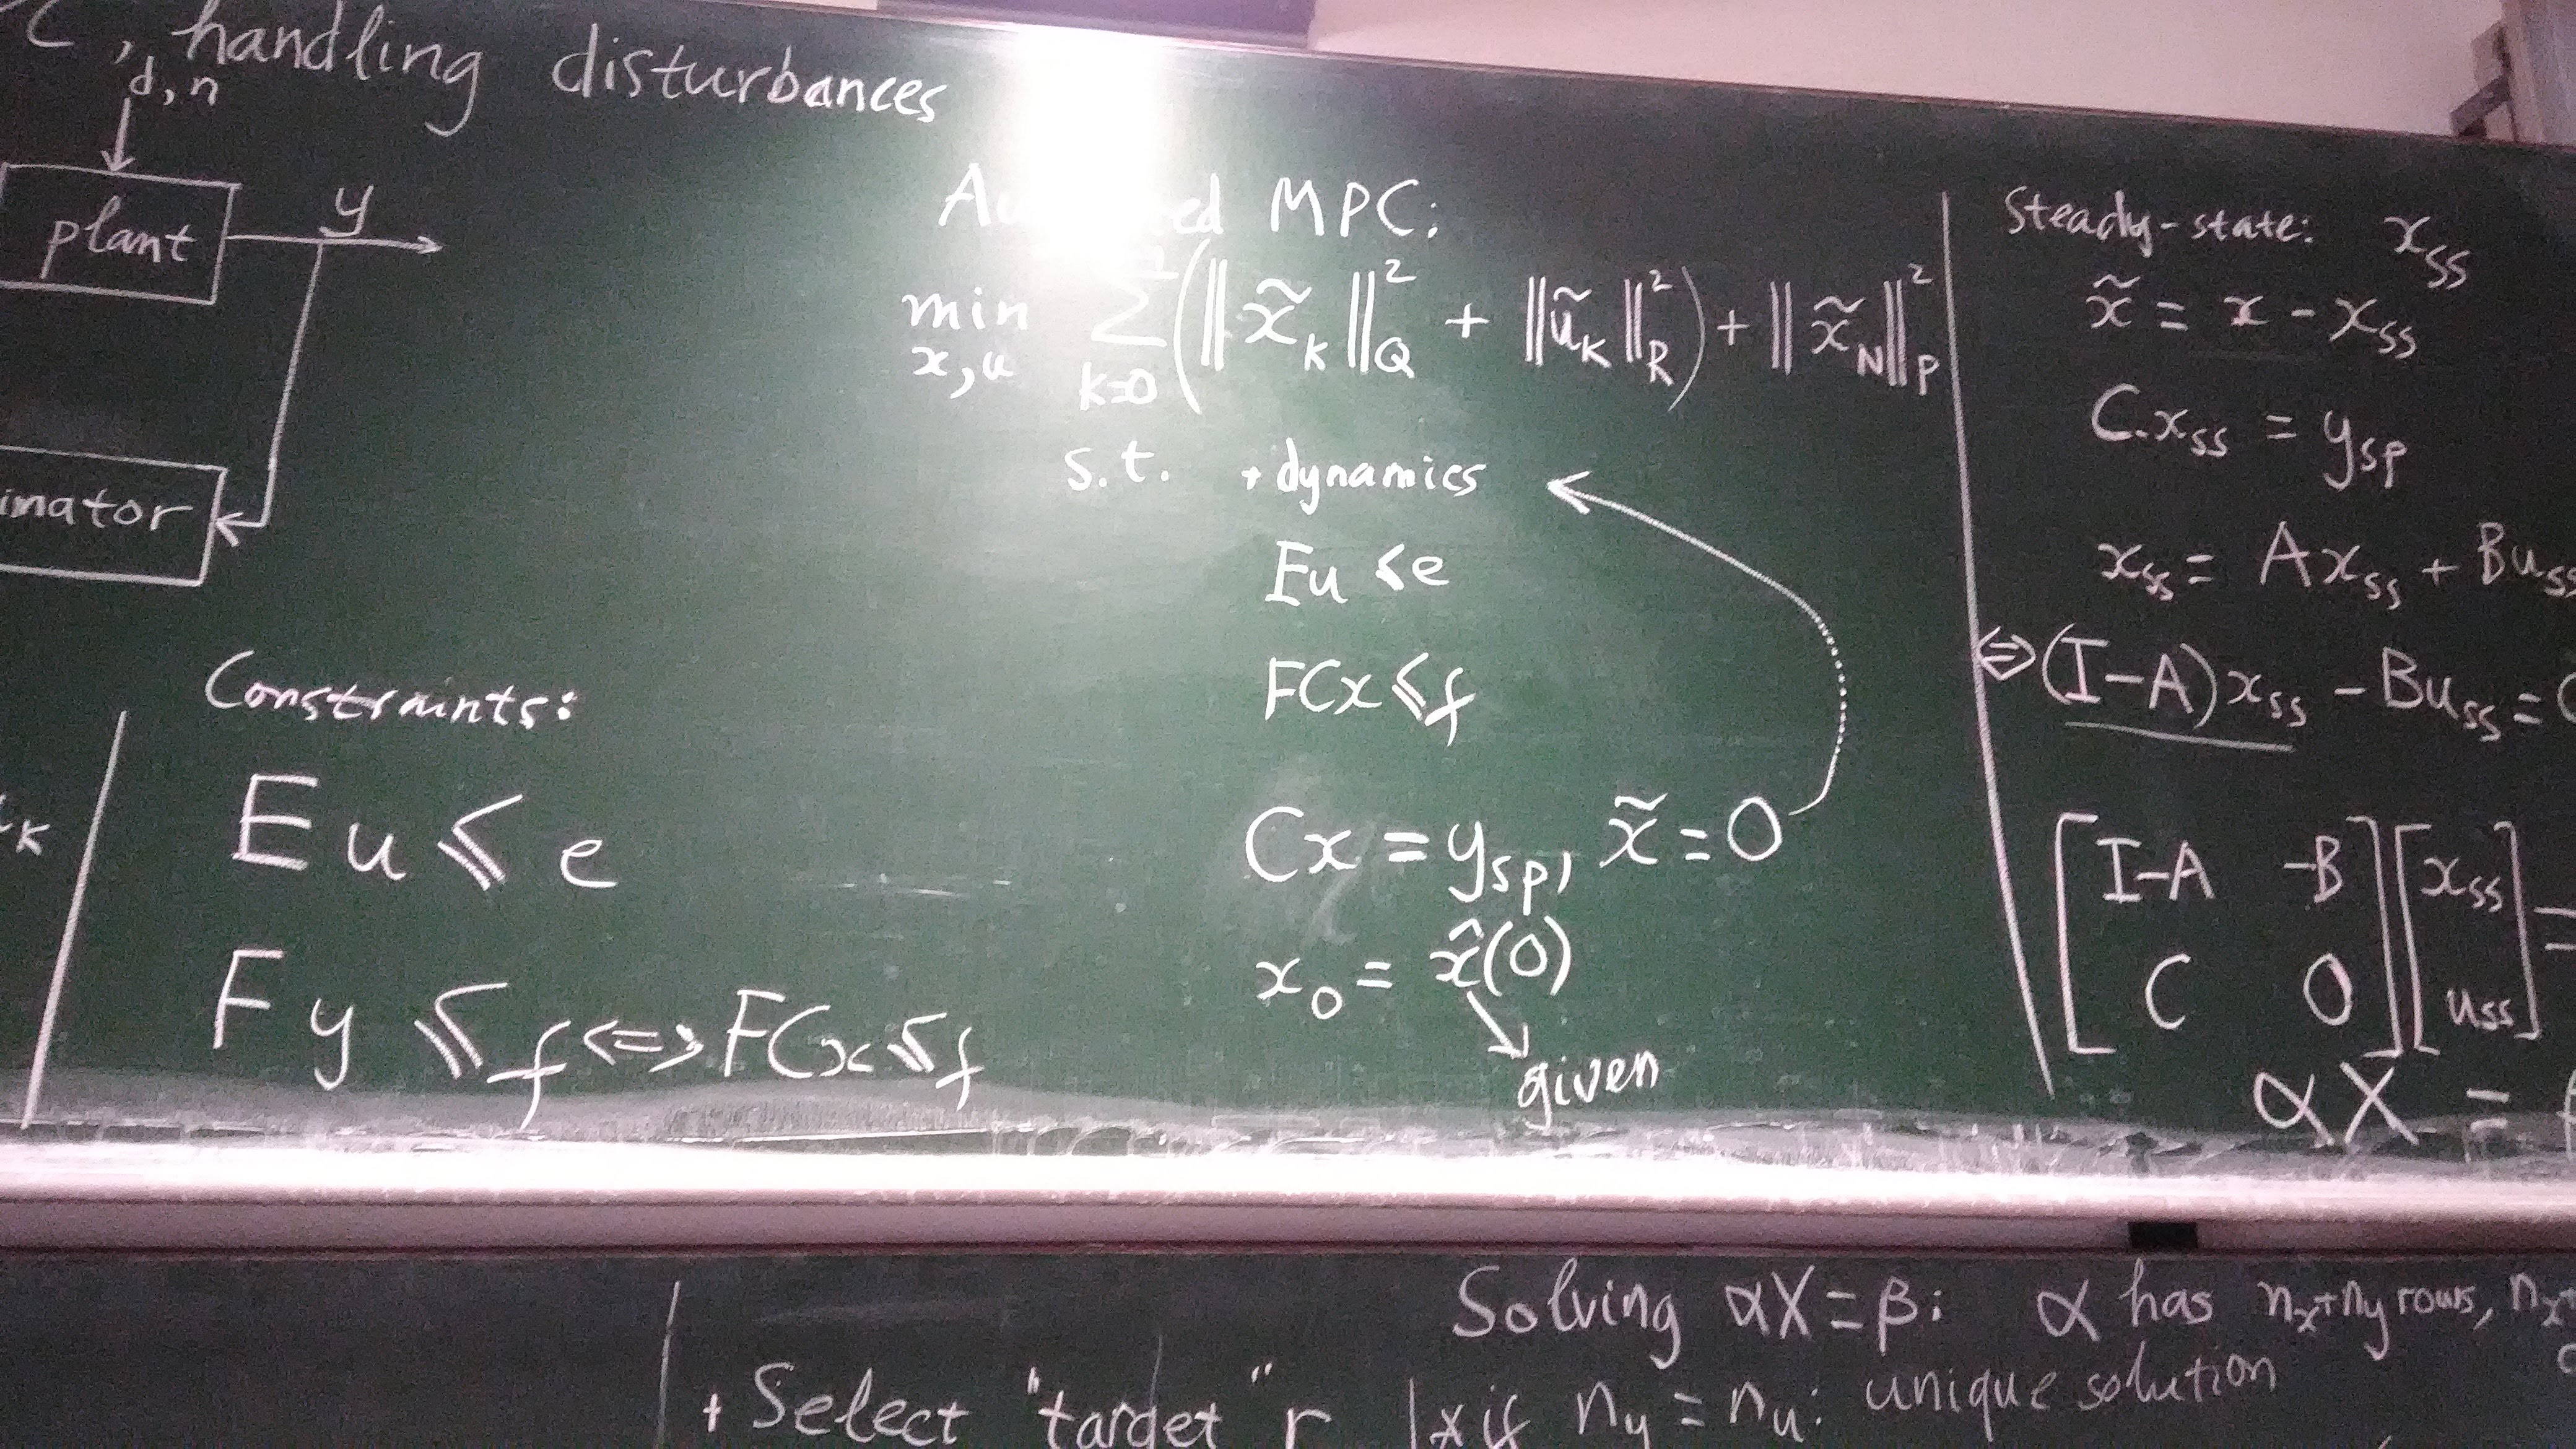 C, handling disturbances
d, n
plant
y
imator
Constraints:
Eu ≤ e
Fy ≤ f <=> FCx ≤ f
K
MPC:
min x,u Σ k=0 (‖x̃_K‖²_Q + ‖ũ_K‖²_R) + ‖x̃_N‖²_P
s.t. + dynamics
Eu ≤ e
FCx ≤ f
Cx = y_sp, x̃ = 0
x_0 = x̂(0)
given
Steady-state: x_ss
x̃ = x - x_ss
C.x_ss = y_sp
x_ss = Ax_ss + Bu_ss
⇔ (I-A)x_ss - Bu_ss =
[I-A -B] [x_ss] =
[C 0] [u_ss]
αX =
Solving αX = β: α has n_x+n_y rows, n_x+
+ Select "target" r
* if n_y = n_u: unique solution